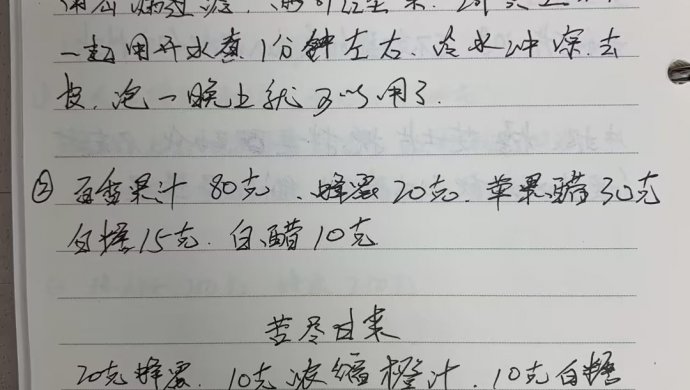 一起用开水煮1分钟左右、冷水冲凉、去
皮、泡一晚上就可以用了.
② 百香果汁 80克、蜂蜜20克、苹果醋30克
白糖15克、白醋10克
苦尽甘来
20克蜂蜜、10克浓缩橙汁、10克白糖